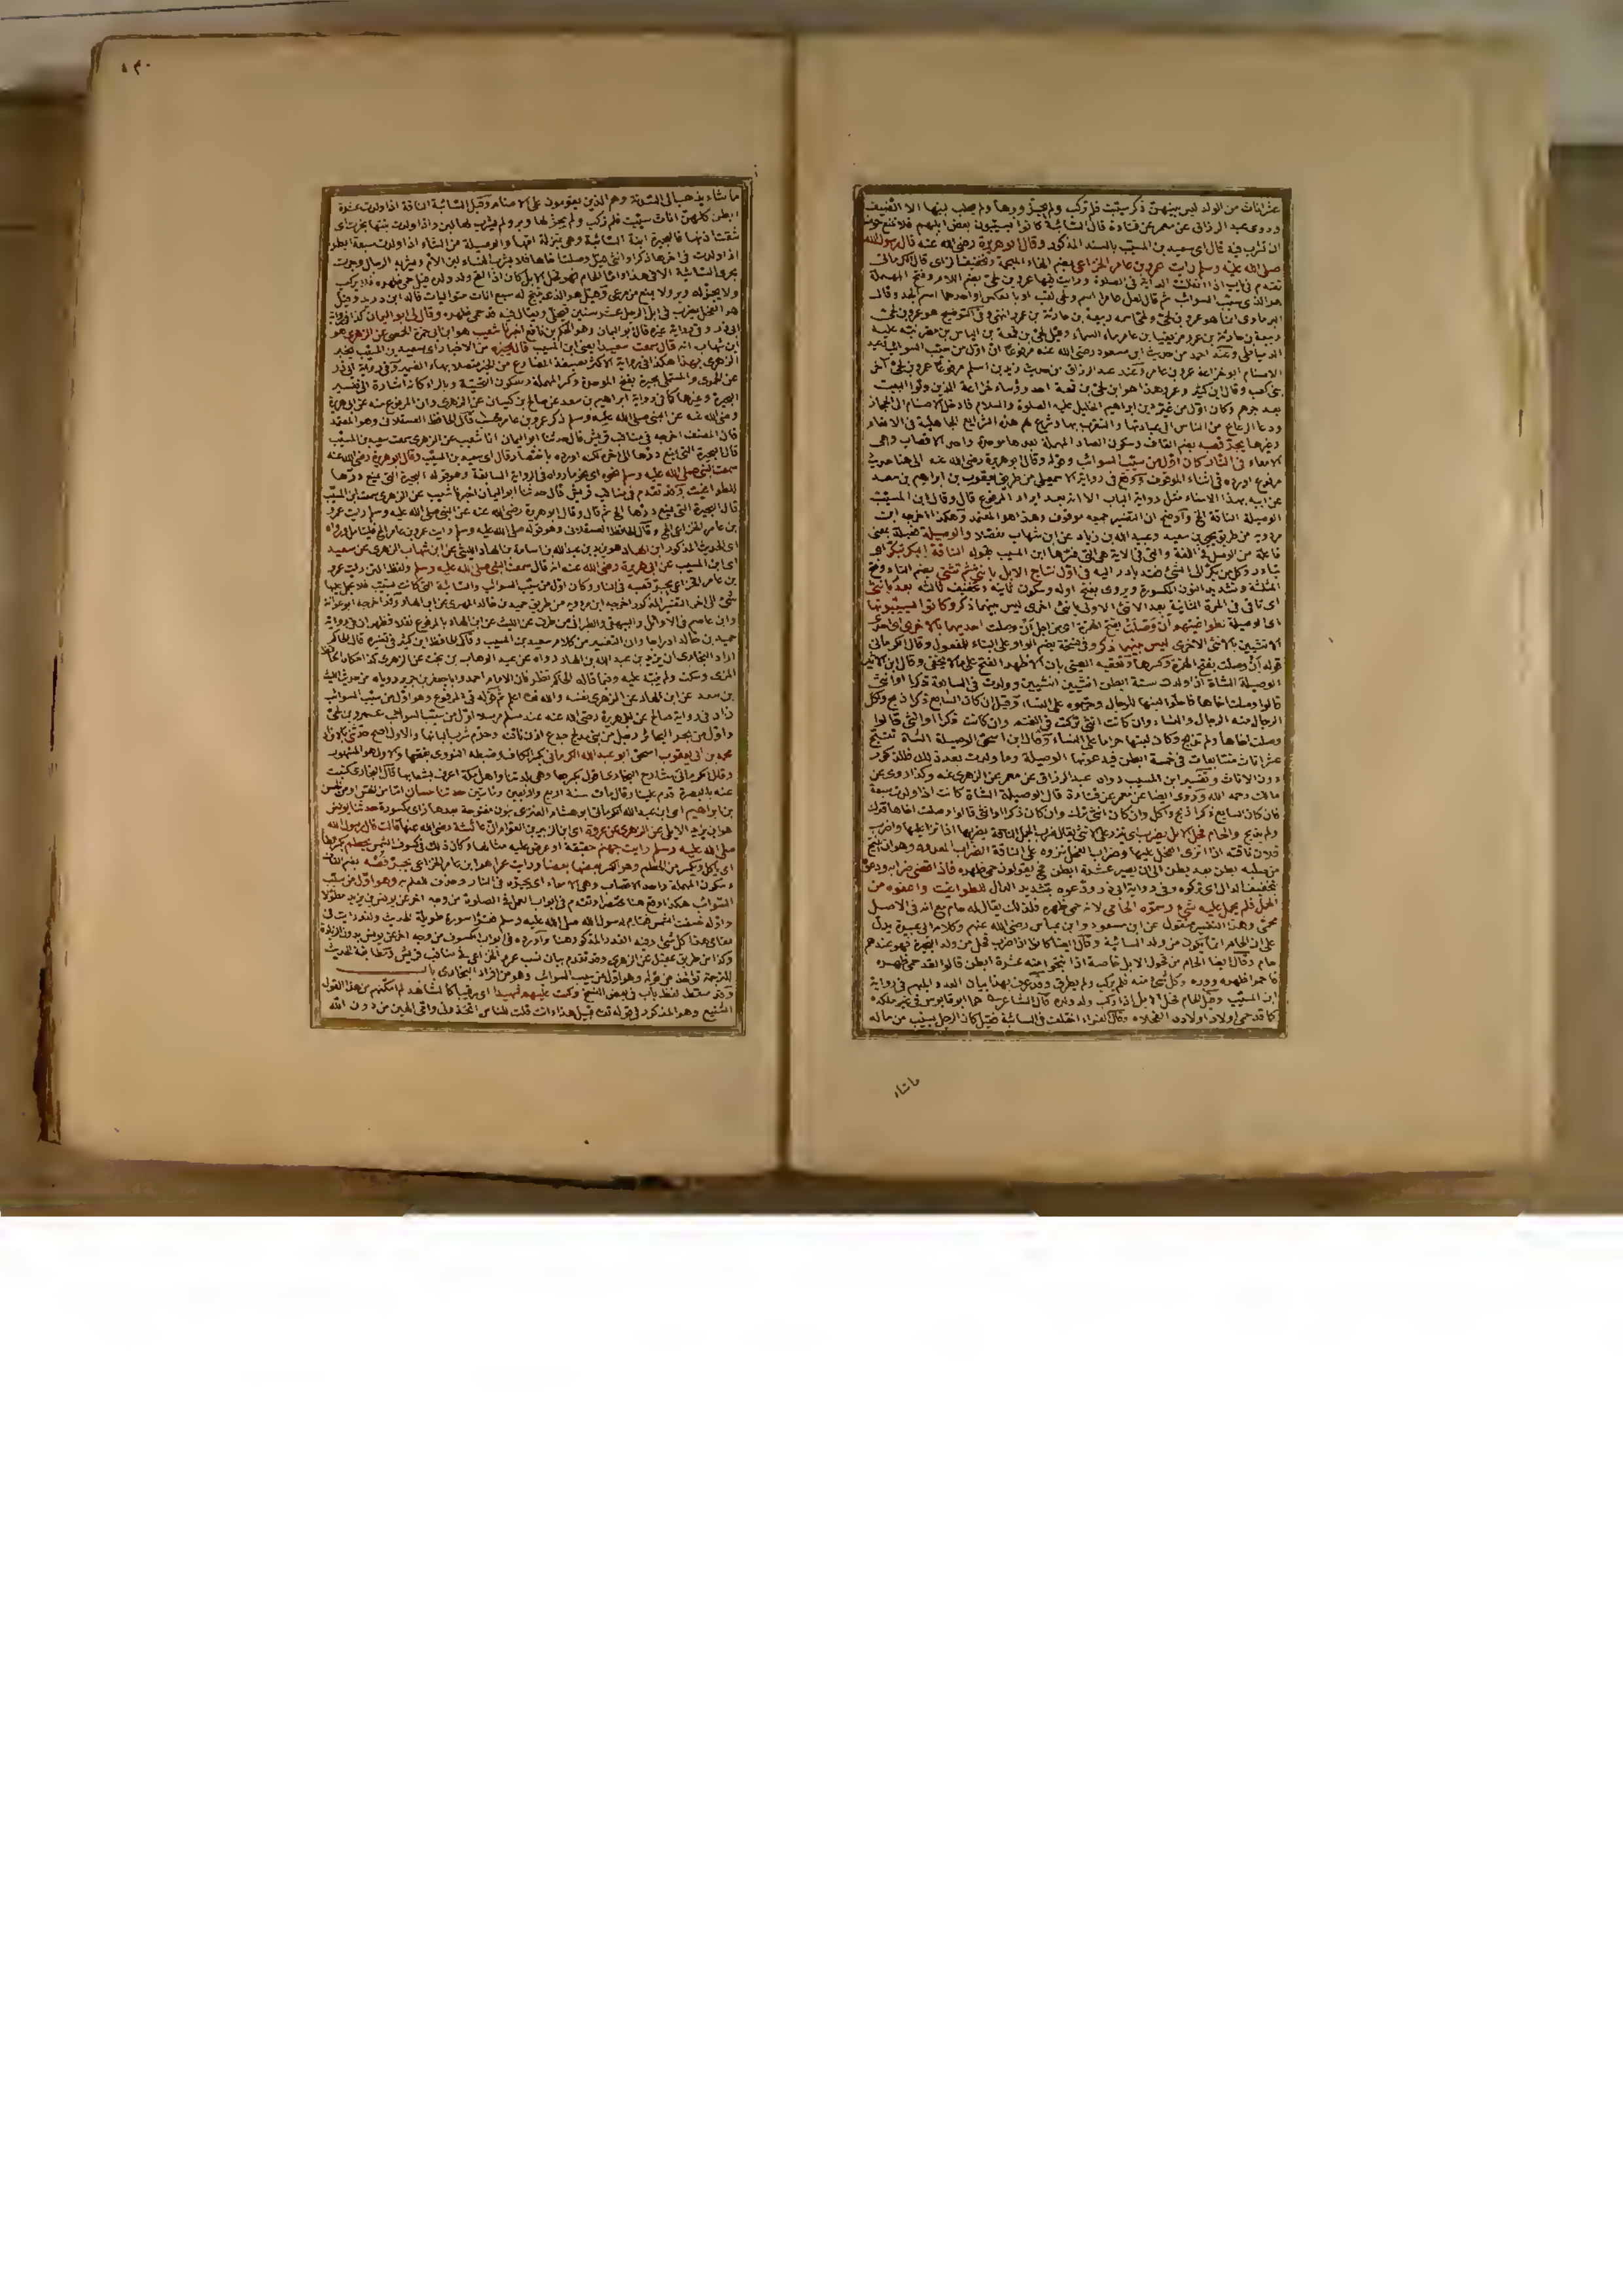 عشر اناث من الولد ليس بينهن ذكر سيبت فلم تركب ولم يجز وبرها ولم يحلب لبنها الا الضيف
وروى عبد الرزاق عن معمر عن قتادة قال السائبة كانوا يسيبون بعض ابلهم فلا تمنع حوضا
ان تشرب فيه قال اى سعيد بن المسيب بالسند المذكور وقال ابو هريرة رضى الله عنه قال رسول الله
صلى الله عليه وسلم رايت عمرو بن عامر الخزاعى بضم الخاء المعجمة وتخفيف الزاى قال الكرمانى
تقدم فى باب اذا انفلتت الدابة فى الصلوة ورايت فيها عمرو بن لحى بضم اللام وفتح المهملة
هو الذى سيب السوائب ثم قال لعل عامرا اسم ولحى لقب او بالعكس او احدهما اسم الجد وقال
البرماوى انما هو عمرو بن لحى ولحى اسمه ربيعة بن حارثة بن عمرو انتهى وفى التوضيح هو عمرو بن لحى
الدمياطى وعند احمد من حديث ابن مسعود رضى الله عنه مرفوعا ان اول من سيب السوائب وعبد
الاصنام ابو خزاعة عمرو بن عامر وعند عبد الرزاق من حديث زيد بن اسلم مرفوعا عمرو بن لحى اخى
بنى كعب وقال ابن كثير وعمرو هذا هو ابن لحى بن قمعة احد رؤساء خزاعة الذين ولوا البيت
بعد جرهم وكان اول من غير دين ابراهيم الخليل عليه الصلوة والسلام فادخل الاصنام الى الحجاز
ودعا الرعاع من الناس الى عبادتها والتقرب بها وشرع لهم هذه الشرائع الجاهلية فى الانعام
وغيرها يجر قصبه بضم القاف وسكون الصاد المهملة بعدها موحدة واحد الاقصاب وهى
الامعاء فى النار كان اول من سيب السوائب وقوله وقال ابو هريرة رضى الله عنه الى هنا حديث
مرفوع اورده فى اثناء الموقوف ووقع فى رواية الاسمعيلى من طريق يعقوب بن ابراهيم بن سعد
عن ابيه بهذا الاسناد مثل رواية الباب الا انه بعد ايراد المرفوع قال وقال ابن المسيب
الوصيلة الناقة الخ واوضح ان التفسير جميعه موقوف وهذا هو المعتمد وهكذا اخرجه ابن
مردويه من طريق يحيى بن سعيد وعبيد الله بن زياد عن ابن شهاب مفصلا والوصيلة فعيلة بمعنى
فاعلة من الوصل فى اللغة والتى فى الاية هى التى فسرها ابن المسيب بقوله الناقة البكر تبكر اى
تبادر وكل من بكر الى الشئ فقد بادر اليه فى اول نتاج الابل بانثى ثم تثنى بضم التاء وفتح
المثلثة وتشديد النون المكسورة ويروى بفتح اوله وسكون ثانيه وتخفيف ثالثه بعد بانثى
اى تاتى فى المرة الثانية بعد الانثى الاولى بانثى اخرى ليس بينهما ذكر وكانوا يسيبونها
اى الوصيلة لطواغيتهم ان وصلت بفتح الهمزة اى من اجل ان وصلت احديهما بالاخرى اى احدى
الانثيين بالانثى الاخرى ليس بينهما ذكر وفى نسخة بضم الواو على البناء للمفعول وقال الكرمانى
قوله ان وصلت بفتح الهمزة وكسرها وتعقبه العينى بان الاظهر الفتح على ما لا يخفى وقال ابن الاثير
الوصيلة الشاة اذا ولدت ستة ابطن انثيين انثيين وولدت فى السابعة ذكرا او انثى
قالوا وصلت اخاها فاحلوا لبنها للرجال وحرموه على النساء وقيل ان كان السابع ذكرا ذبح واكل
الرجال منه الرجال والنساء وان كانت انثى تركت فى الغنم وان كانت ذكرا وانثى قالوا
وصلت اخاها ولم تذبح وكان لبنها حراما على النساء وقال ابن اسحق الوصيلة الشاة تنتج
عشر اناث متتابعات فى خمسة ابطن فيدعونها الوصيلة وما ولدت بعد ذلك فللذكور
دون الاناث وتفسير ابن المسيب رواه عبد الرزاق عن معمر عن الزهرى عنه وكذا روى عن
مالك رحمه الله وروى ايضا عن معمر عن قتادة قال الوصيلة الشاة كانت اذا ولدت سبعة
فان كان السابع ذكرا ذبح واكل وان كان انثى ترك وان كان ذكرا وانثى قالوا وصلت اخاها فترك
ولم يذبح والحام فحل الابل يضرب اى ينزو على الانثى يقال ضرب الجمل الناقة يضربها اذا نزا عليها واضرب
فلان ناقته اذا انزى الفحل عليها وضراب الفحل نزوه على الناقة الضراب المعدود وهو ان ينتج
من صلبه بطن بعد بطن الى ان يصير عشرة ابطن فحينئذ يقولون حمى ظهره فاذا قضى ضرابه ودعوه
بتخفيف الدال اى تركوه وفى رواية ابى ذر ودعوه بتشديد الدال للطواغيت واعفوه من
الحمل فلم يحمل عليه شئ وسموه الحامى لانه حمى ظهره فلذلك يقال له حام مع انه فى الاصل
محمى وهذا التفسير منقول عن ابن مسعود وابن عباس رضى الله عنهم وكلام ابى عبيدة يدل
على ان الحام انما يكون من ولد السائبة وقال ايضا كانوا اذا ضرب فحل من ولد البحيرة فهو عندهم
حام وقال ايضا الحام من فحول الابل خاصة اذا نتجوا منه عشرة ابطن قالوا قد حمى ظهره
فاحموا ظهره ووبره وكل شئ منه فلم يركب ولم يطرق وقد عرف بهذا بيان العدد المبهم فى رواية
ابن المسيب وقيل الحام فحل الابل اذا ركب ولد ولده قال الشاعر حماها ابو قابوس فى غير ملكه
كما قد حمى اولاد اولاده الفحلا وقال الفراء اختلف فى السائبة فقيل كان الرجل يسيب من ماله
ما شاء
٤٣٠
ما شاء يذهب الى السدنة وهم الذين يقومون على الاصنام وقيل السائبة الناقة اذا ولدت عشرة
ابطن كلهن اناث سيبت فلم تركب ولم يجز لها وبر ولم يشرب لها لبن واذا ولدت بنتها بحرت اى
شقت اذنها فالبحيرة ابنة السائبة وهى بمنزلة امها والوصيلة من الشاء اذا ولدت سبعة ابطن
اذا ولدت فى اخرها ذكرا وانثى قيل وصلت اخاها فلا يشرب النساء لبن الام ويشربه الرجال وجرت
مجرى السائبة الا فى هذا واما الحام فهو فحل الابل كان اذا لقح ولد ولده قيل حمى ظهره فلا يركب
ولا يجز له وبر ولا يمنع من مرعى وقيل هو الذى ينتج له سبع اناث متواليات قاله ابن دريد وقيل
هو الفحل يضرب فى ابل الرجل عشر سنين فيخلى ويقال فيه قد حمى ظهره وقال لى ابو اليمان كذا فى رواية
ابى ذر وفى رواية غيره قال ابو اليمان وهو الحكم بن نافع اخبرنا شعيب هو ابن ابى حمزة الحمصى عن الزهرى هو
ابن شهاب انه قال سمعت سعيدا يعنى ابن المسيب قال يخبره من الاخبار اى سعيد بن المسيب يخبر
الزهرى بهذا هكذا فى رواية الاكثر بصيغة المضارع من الخبر متصلا بهاء الضمير وفى رواية ابى ذر
عن الحموى والمستملى بحيرة بفتح الموحدة وكسر المهملة وسكون التحتية وبالراء كانه اشارة الى تفسير
البحيرة وغيرها كما فى رواية ابراهيم بن سعد عن صالح بن كيسان عن الزهرى وان المرفوع منه عن ابى هريرة
رضى الله عنه عن النبى صلى الله عليه وسلم ذكر عمرو بن عامر فحسب قال الحافظ العسقلانى وهو المعتمد
فان المصنف اخرجه فى مناقب قريش قال حدثنا ابو اليمان انا شعيب عن الزهرى سمعت سعيد بن المسيب
قال البحيرة التى يمنع درها الى اخره لكنه اورده باختصار قال اى سعيد بن المسيب وقال ابو هريرة رضى الله عنه
سمعت النبى صلى الله عليه وسلم نحوه اى نحو ما رواه فى الرواية السابقة وهو قوله البحيرة التى يمنع درها
للطواغيت وقد تقدم فى مناقب قريش قال حدثنا ابو اليمان اخبرنا شعيب عن الزهرى سمعت ابن المسيب
قال البحيرة التى يمنع درها الخ ثم قال وقال ابو هريرة رضى الله عنه عن النبى صلى الله عليه وسلم رايت عمرو
بن عامر الخزاعى الخ وقال الحافظ العسقلانى وهو قوله صلى الله عليه وسلم رايت عمرو بن عامر الخ فليتامل ورواه
اى الحديث المذكور ابن الهاد هو يزيد بن عبد الله بن اسامة بن الهاد الليثى عن ابن شهاب الزهرى عن سعيد
اى ابن المسيب عن ابى هريرة رضى الله عنه انه قال سمعت النبى صلى الله عليه وسلم ولفظ المتن رايت عمرو
بن عامر الخزاعى يجر قصبه فى النار وكان اول من سيب السوائب والسائبة التى كانت تسيب فلا يحمل عليها
شئ الى اخر التفسير المذكور اخرجه ابن مردويه من طريق حميد بن خالد المهرى عن ابن الهاد وقد اخرجه ابو عوانة
وابن عاصم فى الاوائل والبيهقى والطبرانى من طرق عن الليث عن ابن الهاد بالمرفوع فقط فظهر ان فى رواية
حميد بن خالد ادراجا وان التفسير من كلام سعيد بن المسيب وقال الحافظ ابن كثير فى تفسيره قال الحاكم
اراد البخارى ان يزيد بن عبد الله بن الهاد رواه عن عبد الوهاب بن بخت عن الزهرى كذا حكاه الحافظ
المزى وسكت ولم ينبه عليه وفيما قاله الحاكم نظر فان الامام احمد وابا جعفر بن جرير روياه من حديث الليث
بن سعد عن ابن الهاد عن الزهرى نفسه والله تعالى اعلم ثم قوله فى المرفوع وهو اول من سيب السوائب
زاد فى رواية صالح عن ابى هريرة رضى الله عنه عند مسلم مرسلا اول من سيب السوائب عمرو بن لحى
واول من بحر البحائر رجل من بنى مدلج جدع اذن ناقته وحرم شرب البانها والاول اصح حدثنى بالافراد
محمد بن ابى يعقوب اسحق ابو عبد الله الكرمانى بكسر الكاف وضبطه النووى بفتحها والاول هو المشهور
وقال الكرمانى شارح البخارى اقول بكسرها وهى بلدتنا واهل مكة اعرف بشعابها قال البخارى كتبت
عنه بالبصرة قدم علينا وقال مات سنة اربع واربعين ومائتين حدثنا حسان
بن ابراهيم اى ابن عبد الله الكرمانى ابو هشام العنزى بنون مفتوحة بعدها زاى مكسورة حدثنا يونس
هو ابن يزيد الايلى عن الزهرى عن عروة اى ابن الزبير بن العوام ان عائشة رضى الله عنها قالت قال رسول الله
صلى الله عليه وسلم رايت جهنم حقيقة او عرض عليه مثالها وكان ذلك فى كسوف الشمس يحطم بكسر الطاء
اى ياكل ويكسر من الحطم وهو الكسر بعضها بعضا ورايت عمرا هو ابن عامر الخزاعى يجر قصبه بضم القاف
وسكون المهملة واحد الاقصاب وهى الامعاء اى يجره فى النار وحذف للعلم به وهو اول من سيب
السوائب هكذا وقع هنا مختصرا وتقدم فى ابواب العمل فى الصلوة من وجه اخر عن يونس بن يزيد مطولا
واوله خسفت الشمس فقام رسول الله صلى الله عليه وسلم فقرا سورة طويلة الحديث
وكذا من طريق عقيل عن الزهرى وقد تقدم بيان نسب عمرو الخزاعى فى مناقب قريش ومطابقة الحديث
للترجمة تؤخذ من قوله وهو اول من سيب السوائب وهو من افراد البخارى باب
وقد سقط لفظ باب فى بعض النسخ وكنت عليهم شهيدا اى رقيبا كالمشاهد لم امكنهم من هذا القول
الشنيع وهو المذكور فى قوله تعالى قبيل هذا ءانت قلت للناس اتخذونى وامى الهين من دون الله